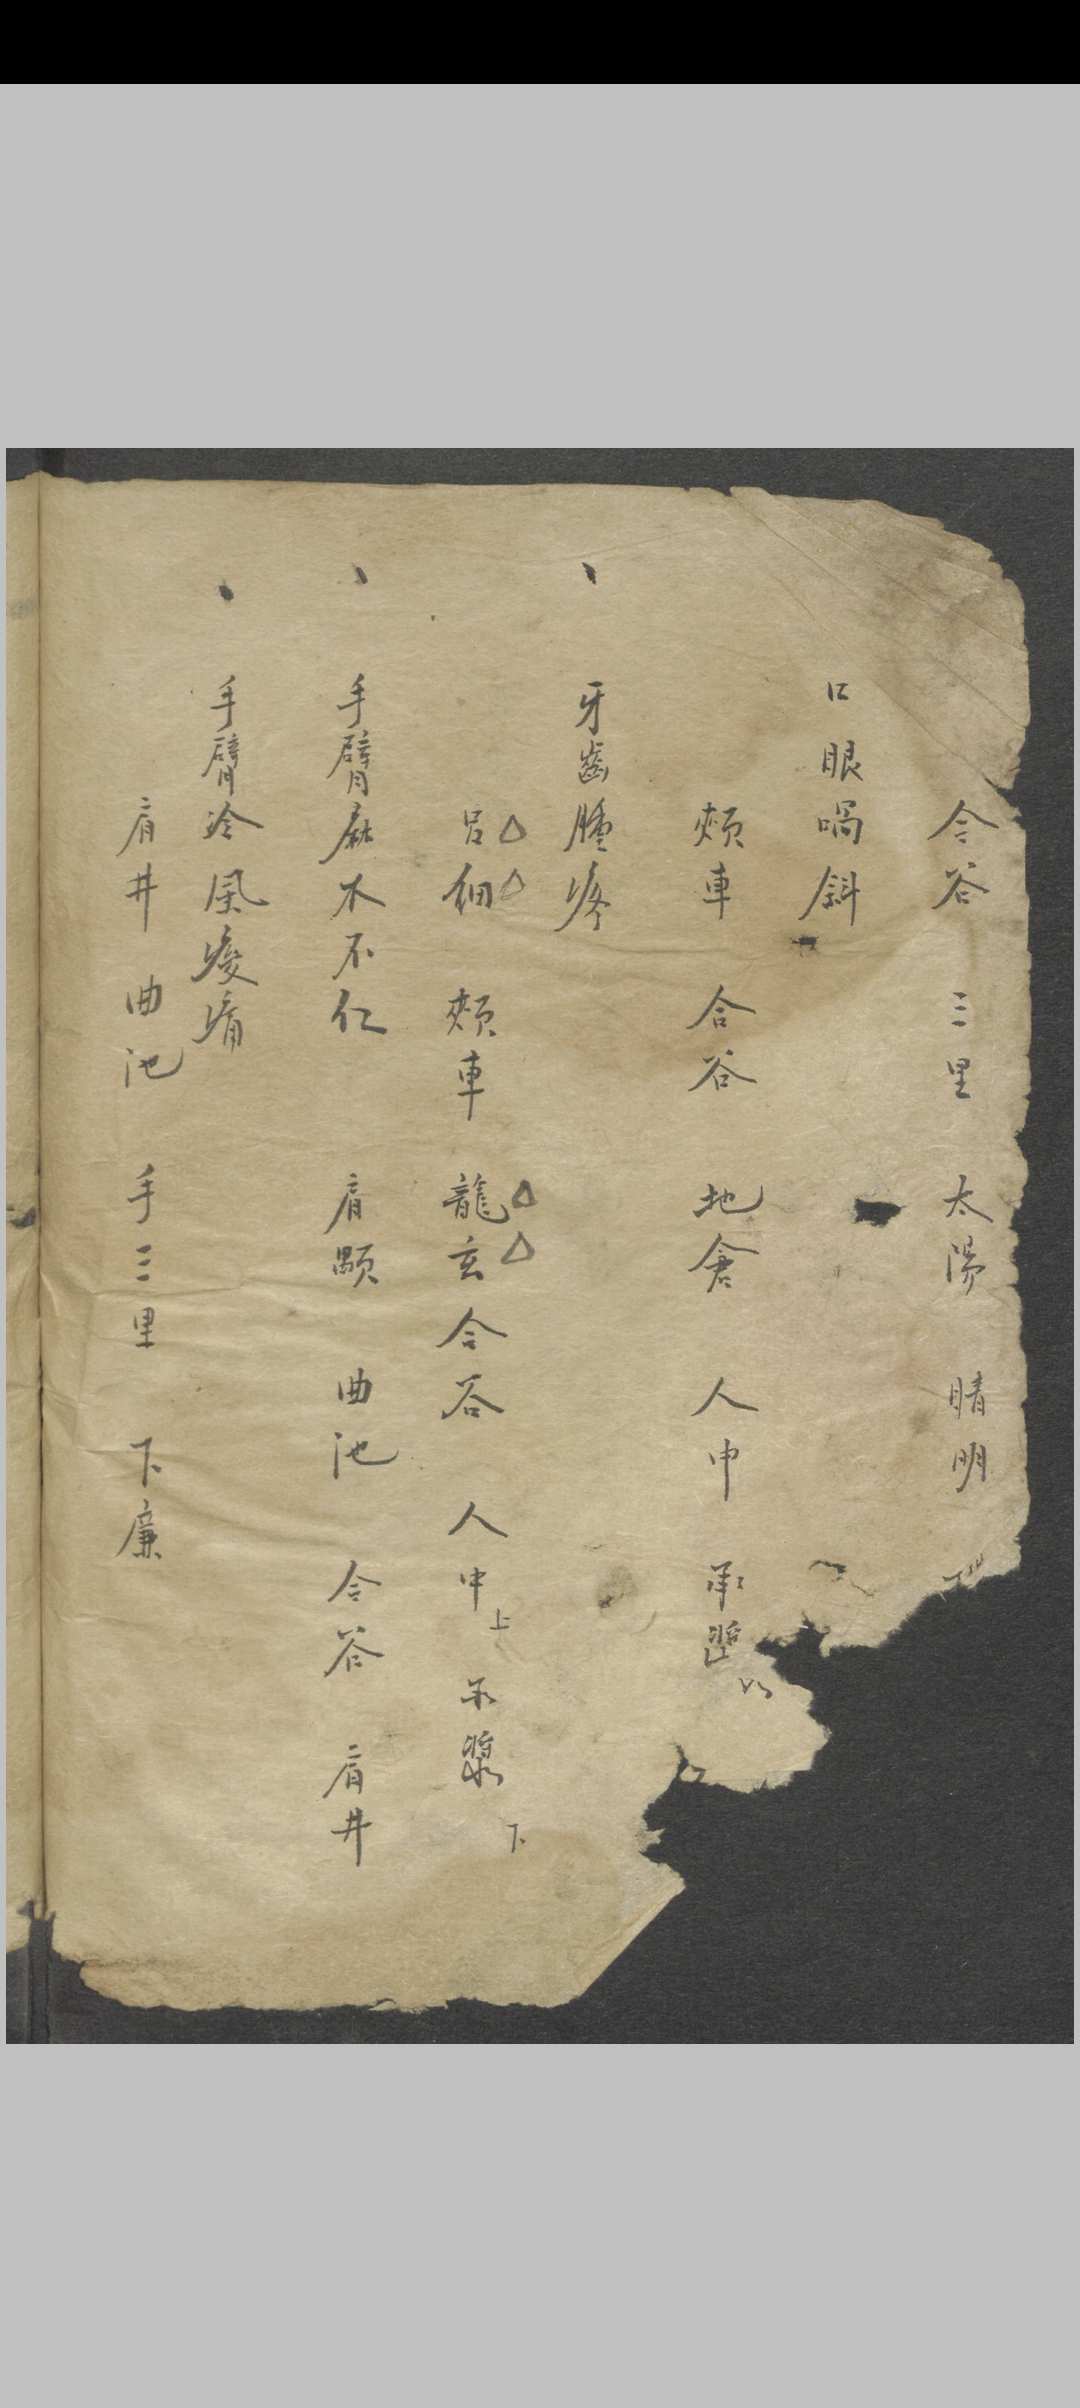 合谷 三里 太陽 睛明
口眼喎斜
頰車 合谷 地倉 人中 承漿
牙齒腫疼
呂細 頰車 龍玄 合谷 人中上 承漿下
手臂麻木不仁 肩顒 曲池 合谷 肩井
手臂冷風痠痛
肩井 曲池 手三里 下廉